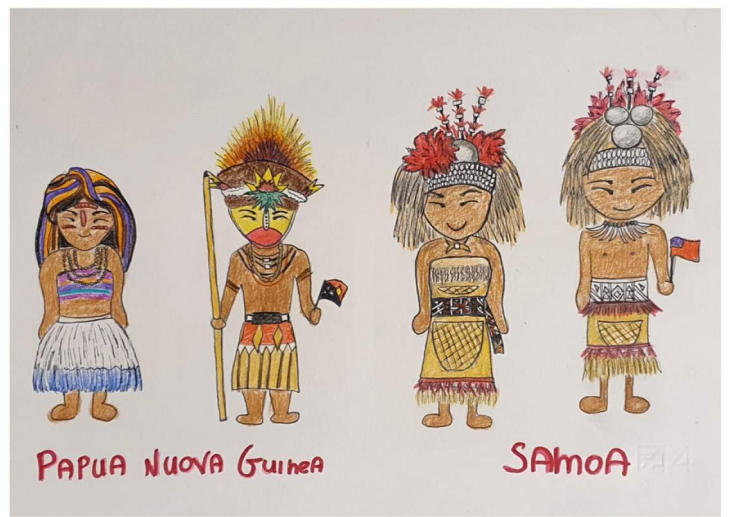 PAPUA NUOVA GuineA
SAmoA